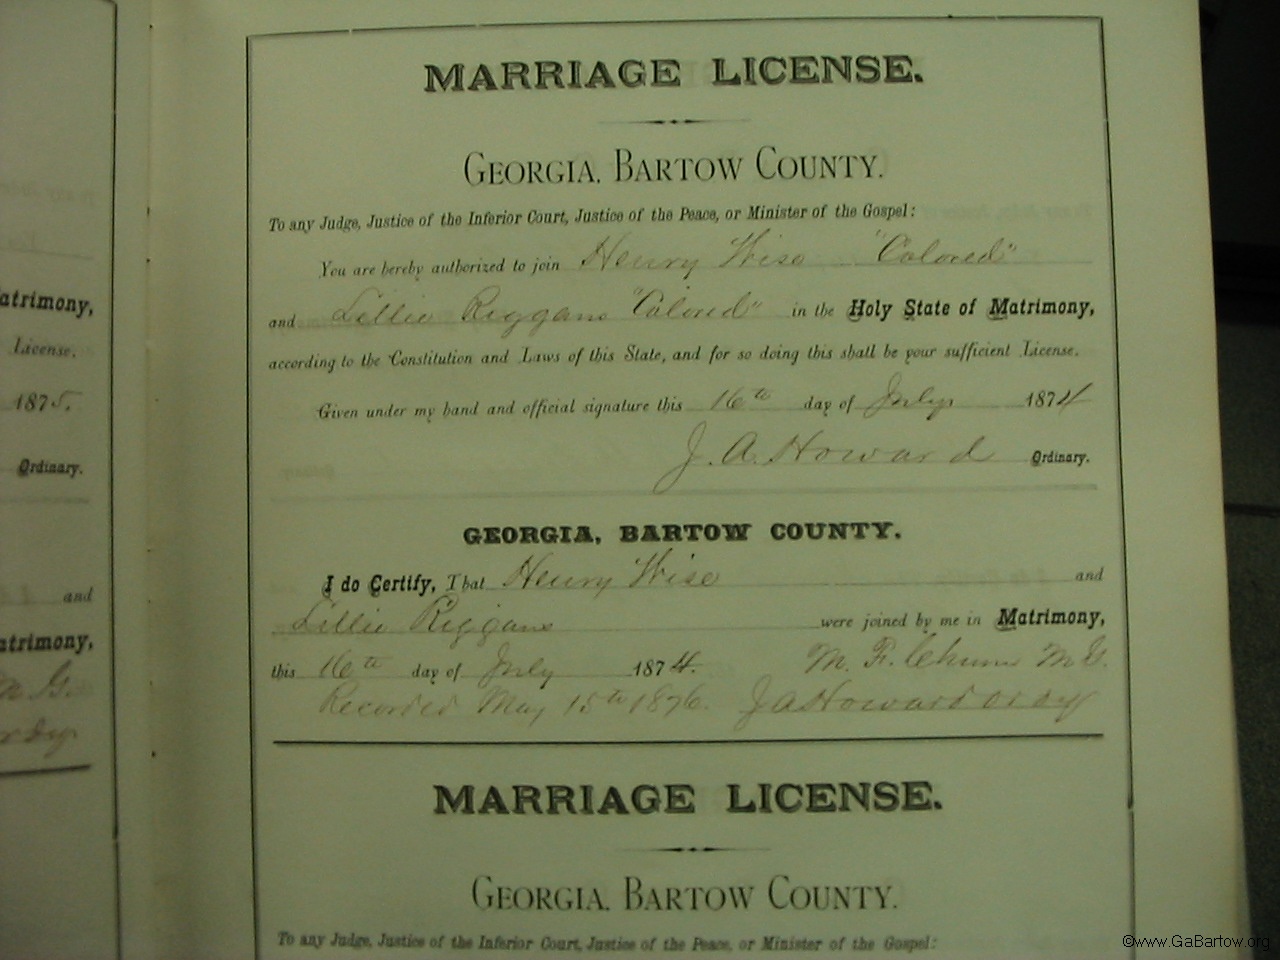 MARRIAGE LICENSE.
GEORGIA, BARTOW COUNTY.
To any Judge, Justice of the Inferior Court, Justice of the Peace, or Minister of the Gospel:
You are hereby authorized to join Henry Wise "Colored"
and Lillie Riggans "Colored" in the Holy State of Matrimony,
according to the Constitution and Laws of this State, and for so doing this shall be your sufficient License.
Given under my hand and official signature this 16th day of July 1874
J. A. Howard Ordinary.
GEORGIA, BARTOW COUNTY.
I do Certify, That Henry Wise and
Lillie Riggans were joined by me in Matrimony,
this 16th day of July 1874. M. F. M. G.
Recorded May 15th 1876. J A Howard ordy
MARRIAGE LICENSE.
GEORGIA, BARTOW COUNTY.
To any Judge, Justice of the Inferior Court, Justice of the Peace, or Minister of the Gospel:
atrimony,
License.
1875.
Ordinary.
and
atrimony,
M. G.
©www.GaBartow.org